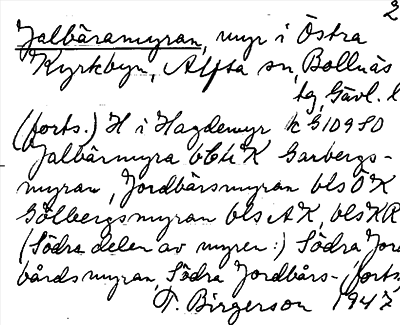 2
Jalbäramyran, myr i Östra
Kyrkbyn, Alfta sn, Bollnäs
tg, Gävl. l
(forts.) H i Hagdemyr k G 10980
Jalbärmyra Garbergs-
myran, Jordbärsmyran bls ÖK
Gölbergsmyran bls AK, bls KR
(Södra delen av myren:) Södra Jord
bärdsmyran, Södra Jordbärs- (forts
T. Birgerson 1947